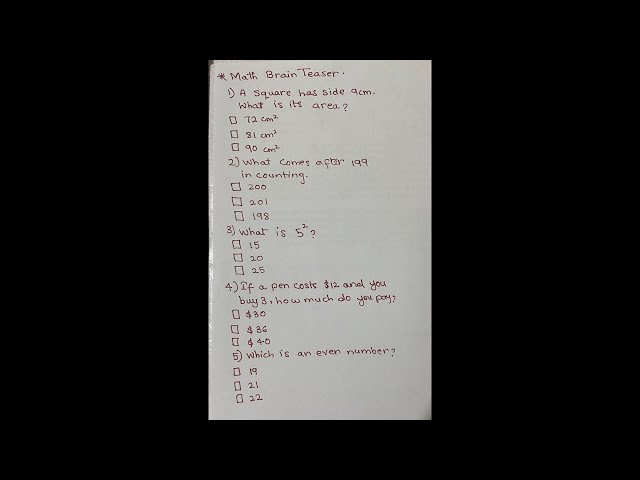 * Math Brain Teaser.
1) A square has side 9cm.
What is its area?
□ 72 cm²
□ 81 cm²
□ 90 cm²
2) What comes after 199
in counting.
□ 200
□ 201
□ 198
3) What is 5²?
□ 15
□ 20
□ 25
4) If a pen costs $12 and you
buy 3, how much do you pay?
□ $30
□ $36
□ $40
5) Which is an even number?
□ 19
□ 21
□ 22